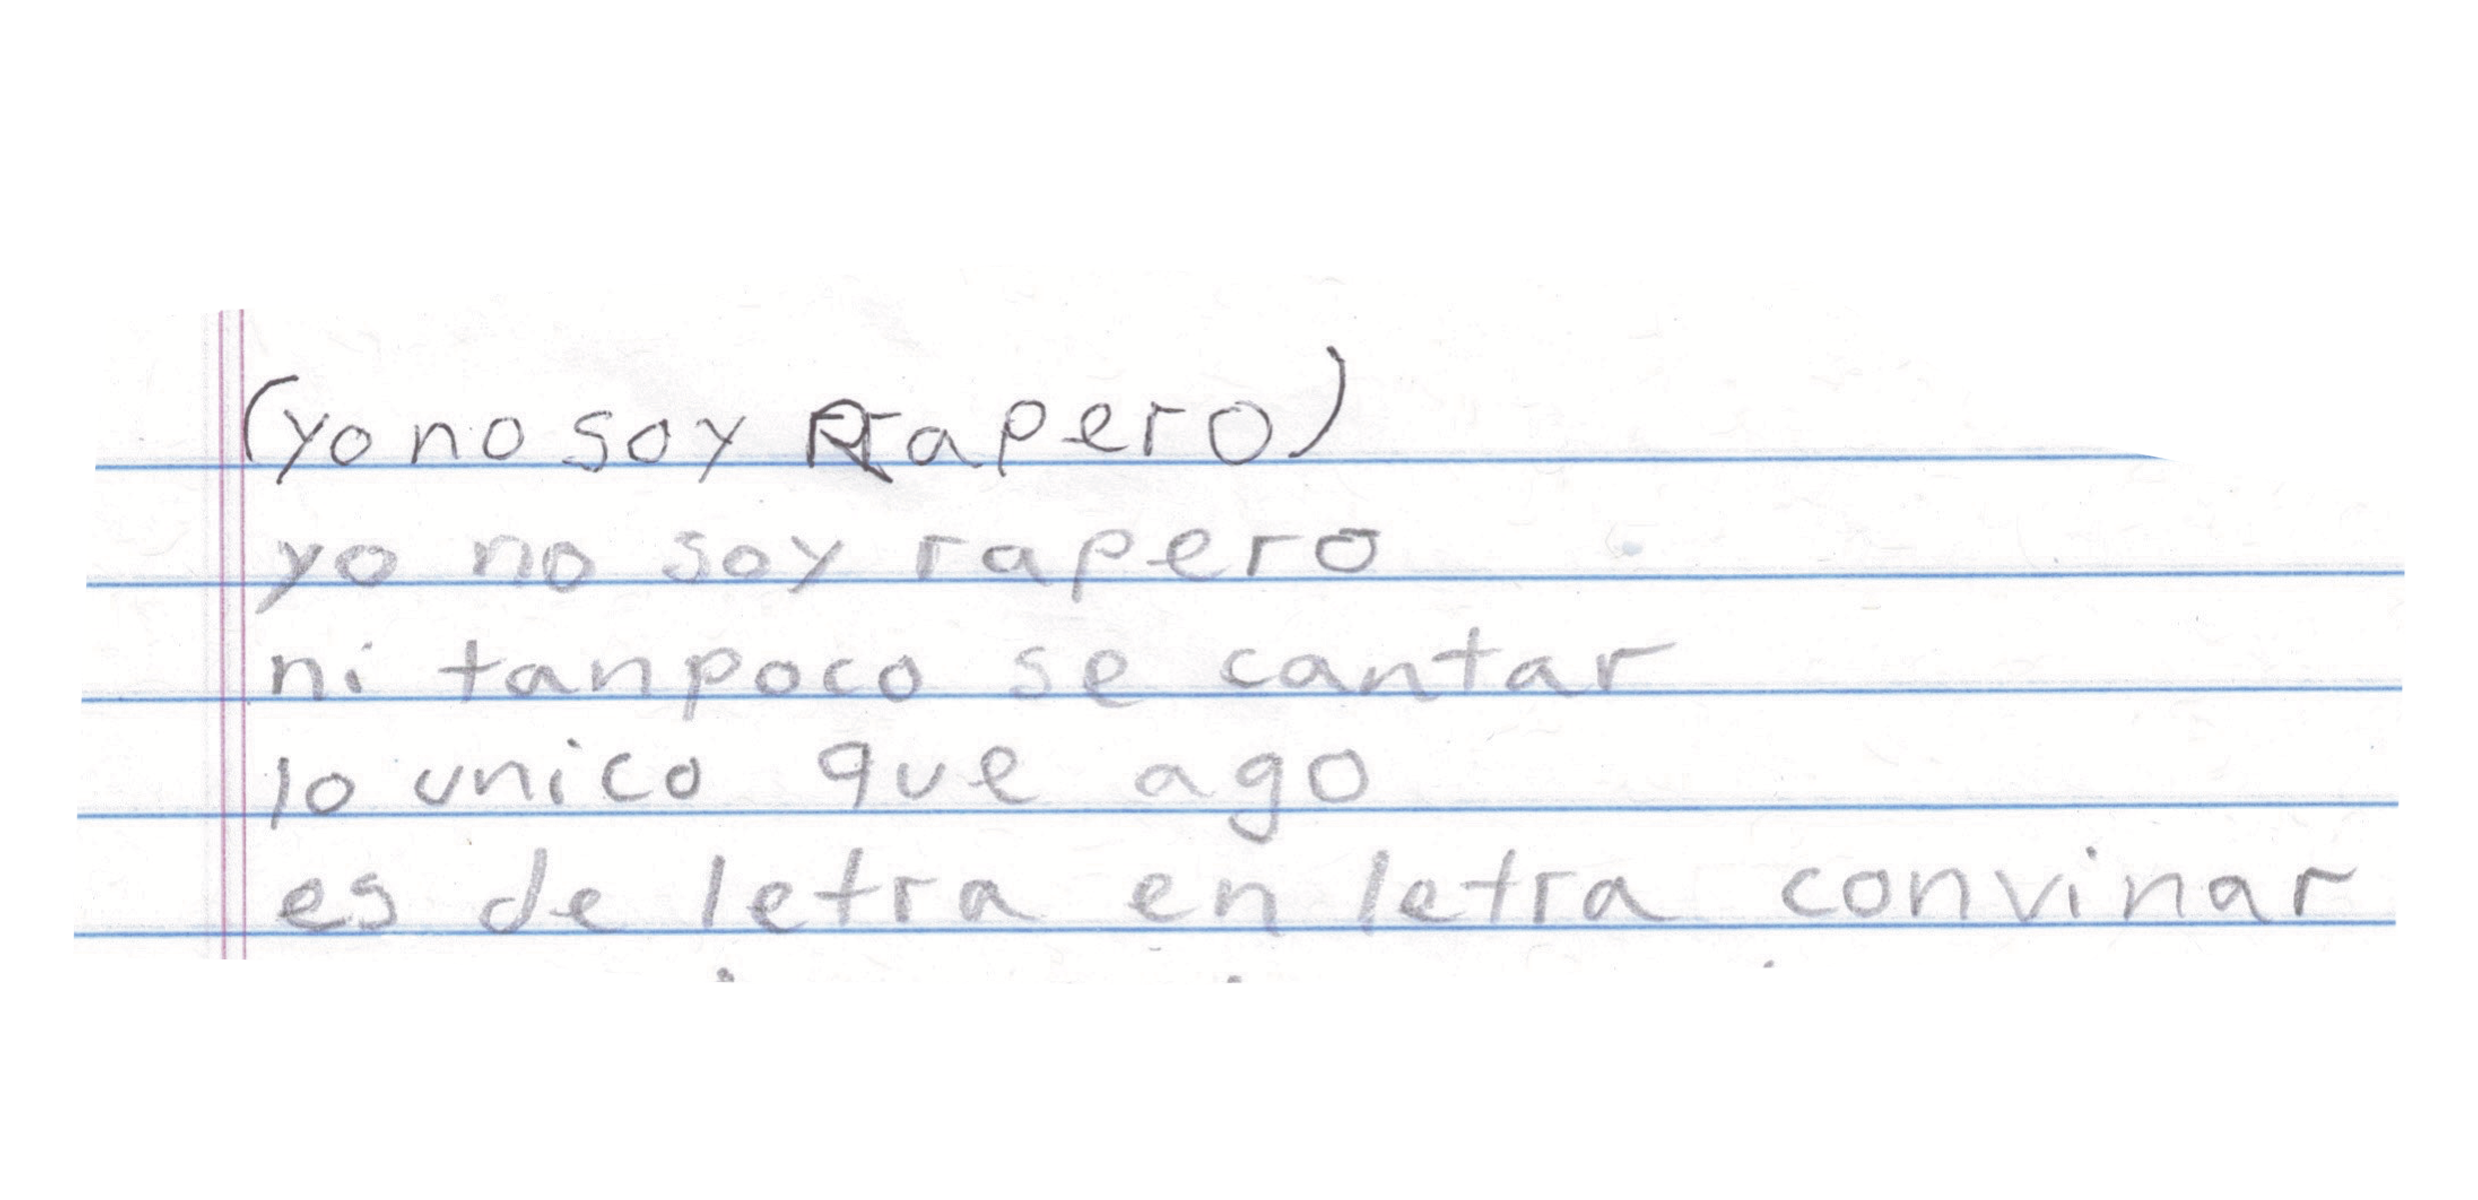 (yo no soy Rapero)
yo no soy rapero
ni tanpoco se cantar
lo unico que ago
es de letra en letra convinar